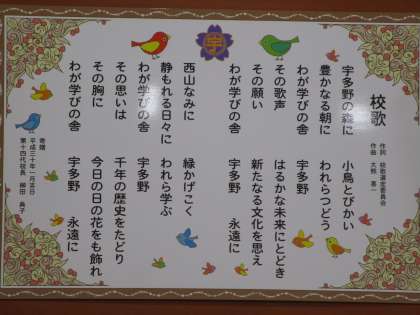 校歌
作詞 校歌選定委員会
作曲 大熊 喜一
宇多野の森に 小鳥とびかい
豊かなる朝に われらつどう
わが学びの舎 宇多野
その歌声 はるかな未来にとどき
その願い 新たなる文化を思え
わが学びの舎 宇多野 永遠に
西山なみに 緑かげこく
静もれる日々に われら学ぶ
わが学びの舎 宇多野
その思いは 千年の歴史をたどり
その胸に 今日の日の花をも飾れ
わが学びの舎 宇多野 永遠に
寄贈
平成三十年一月吉日
第十四代校長 柳田 典子
宇